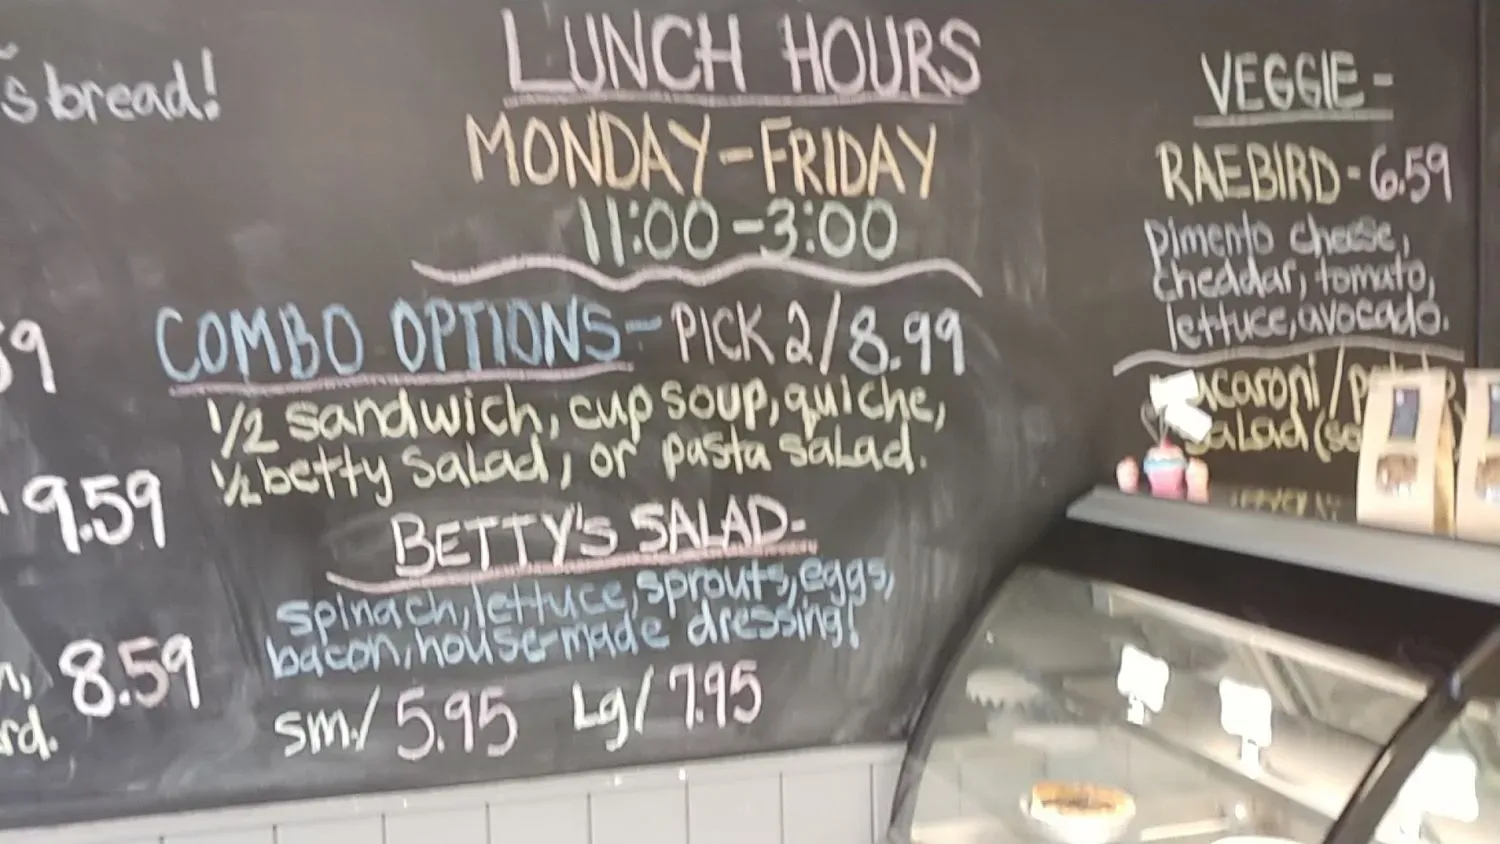 s bread!
9
9.59
8.59
rd.
LUNCH HOURS
MONDAY-FRIDAY
11:00-3:00
COMBO OPTIONS- PICK 2/8.99
1/2 sandwich, cup soup, quiche,
1/2 betty salad, or pasta salad.
BETTY'S SALAD-
spinach, lettuce, sprouts, eggs,
bacon, house-made dressing!
sm./5.95 Lg/7.95
VEGGIE-
RAEBIRD-6.59
pimento cheese,
cheddar, tomato,
lettuce, avocado.
salad